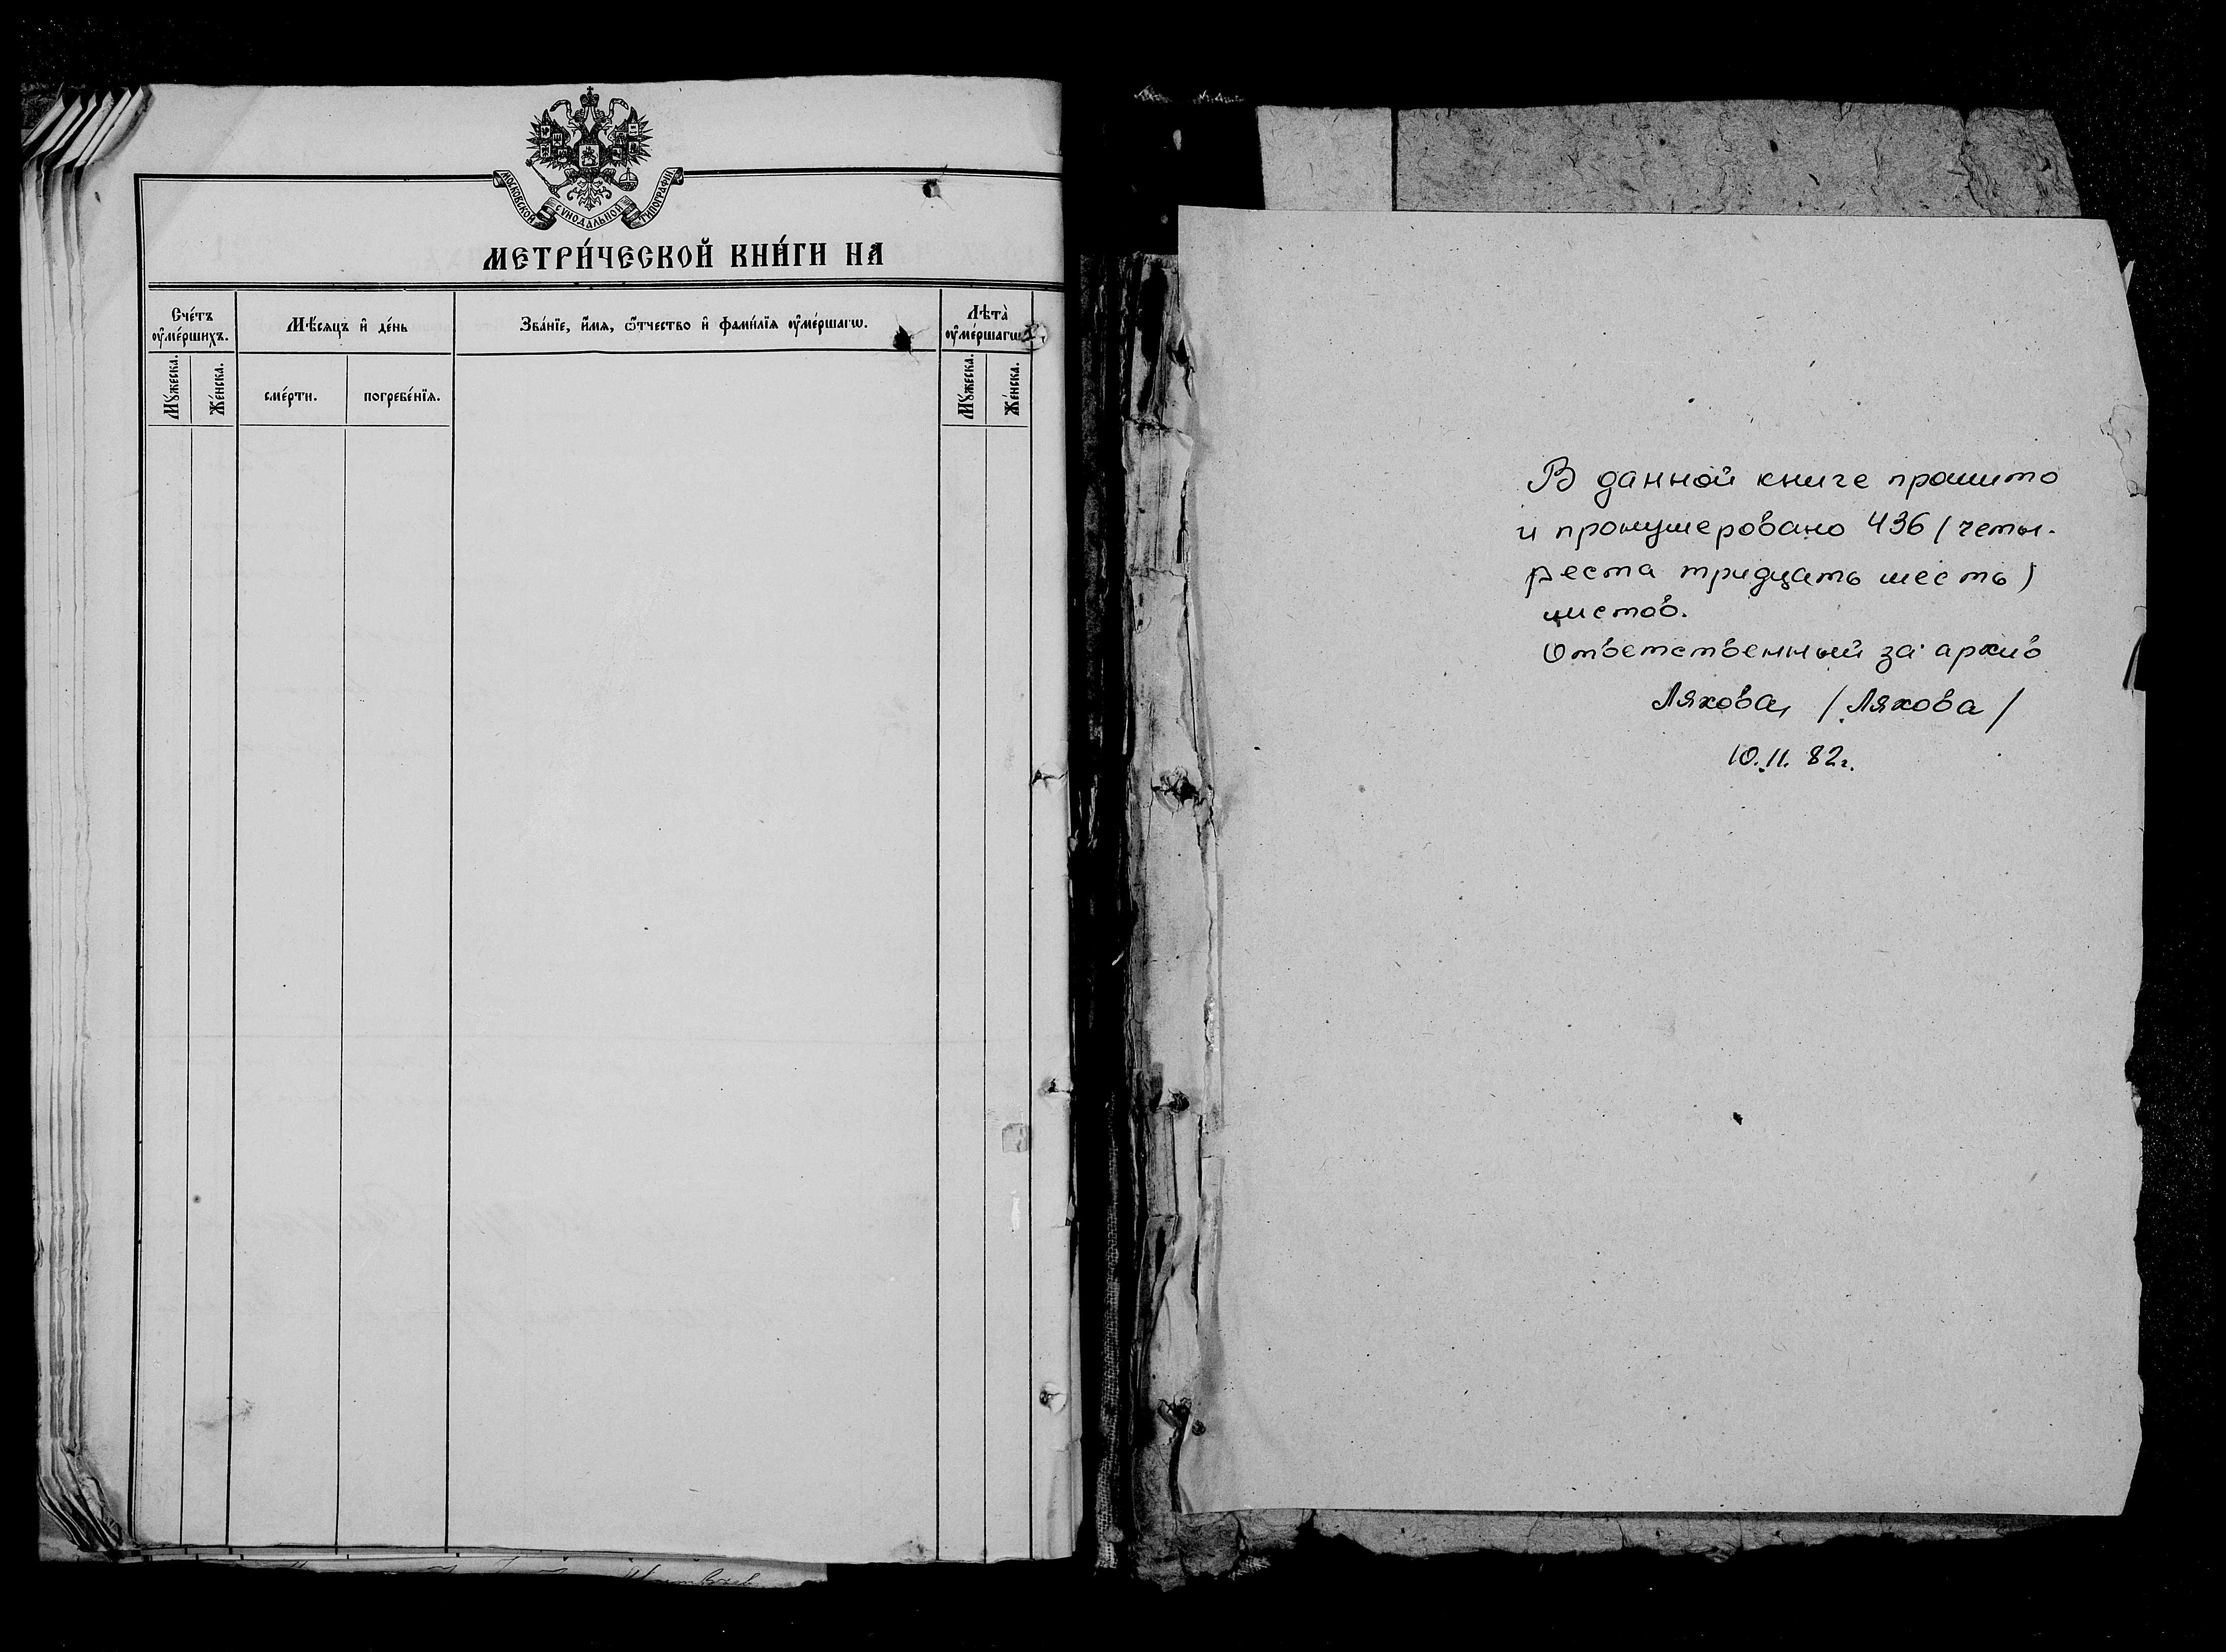 МОСКОВСКОЙ СѴНОДАЛЬНОЙ ТИПОГРАФІИ
МЕТРИ́ЧЕСКОЙ КНИ́ГИ НА
Сче́тъ
ᲂу҆ме́ршихъ.
Мѣ́сяцъ и҆ де́нь
Зва́нїе, и҆́мя, ѻ҆́тчество и҆ фами́лїя ᲂу҆ме́ршагѡ.
Лѣта̀
ᲂу҆ме́ршагѡ
Мꙋ́жеска.
Же́нска.
сме́рти.
погребе́нїя.
Мꙋ́жеска.
Же́нска.
В данной книге прошито
и пронумеровано 436 / четы-
реста тридцать шесть )
листов.
Ответственный за архив
Ляхова, / Ляхова /
10. 11. 82г.